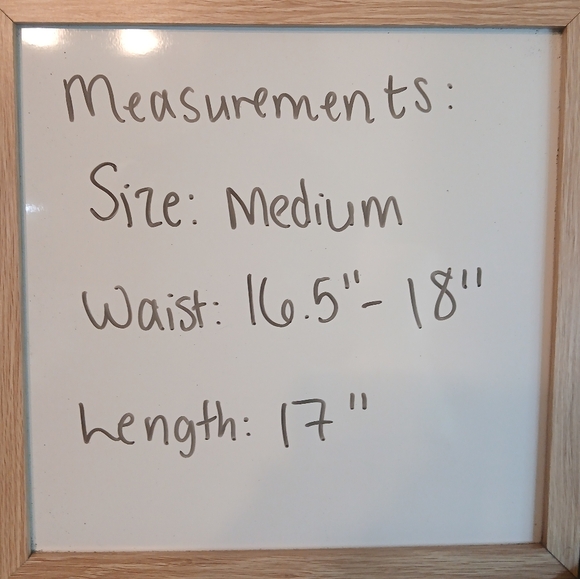 Measurements:
Size: Medium
Waist: 16.5"- 18"
Length: 17"